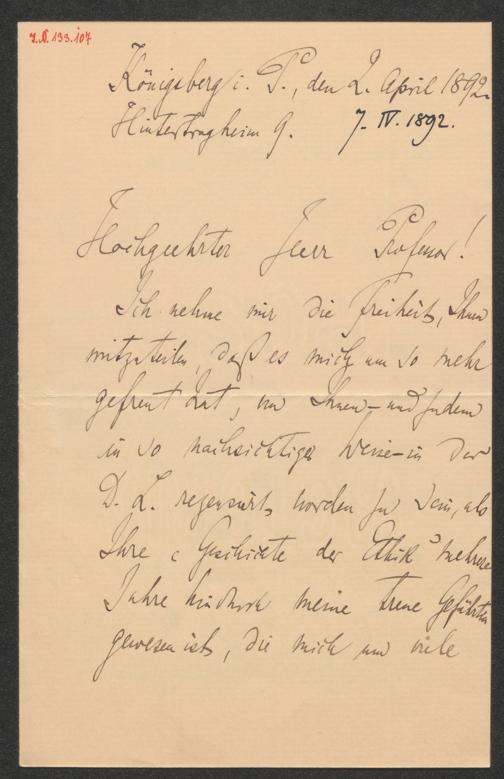 I.N. 133.107
Königsberg i. P., den 2. April 1892.
Hintertragheim 9. 7. IV. 1892.
Hochgeehrter Herr Professor!
Ich nehme mir die Freiheit, Ihnen
mitzuteilen, daß es mich um so mehr
gefreut hat, von Ihnen – und zudem
in so nachsichtiger Weise – in der
D. L. rezensirt worden zu sein, als
Ihre "Geschichte der Ethik" mehrere
Jahre hindurch meine treue Gefährtin
gewesen ist, die mich um viele